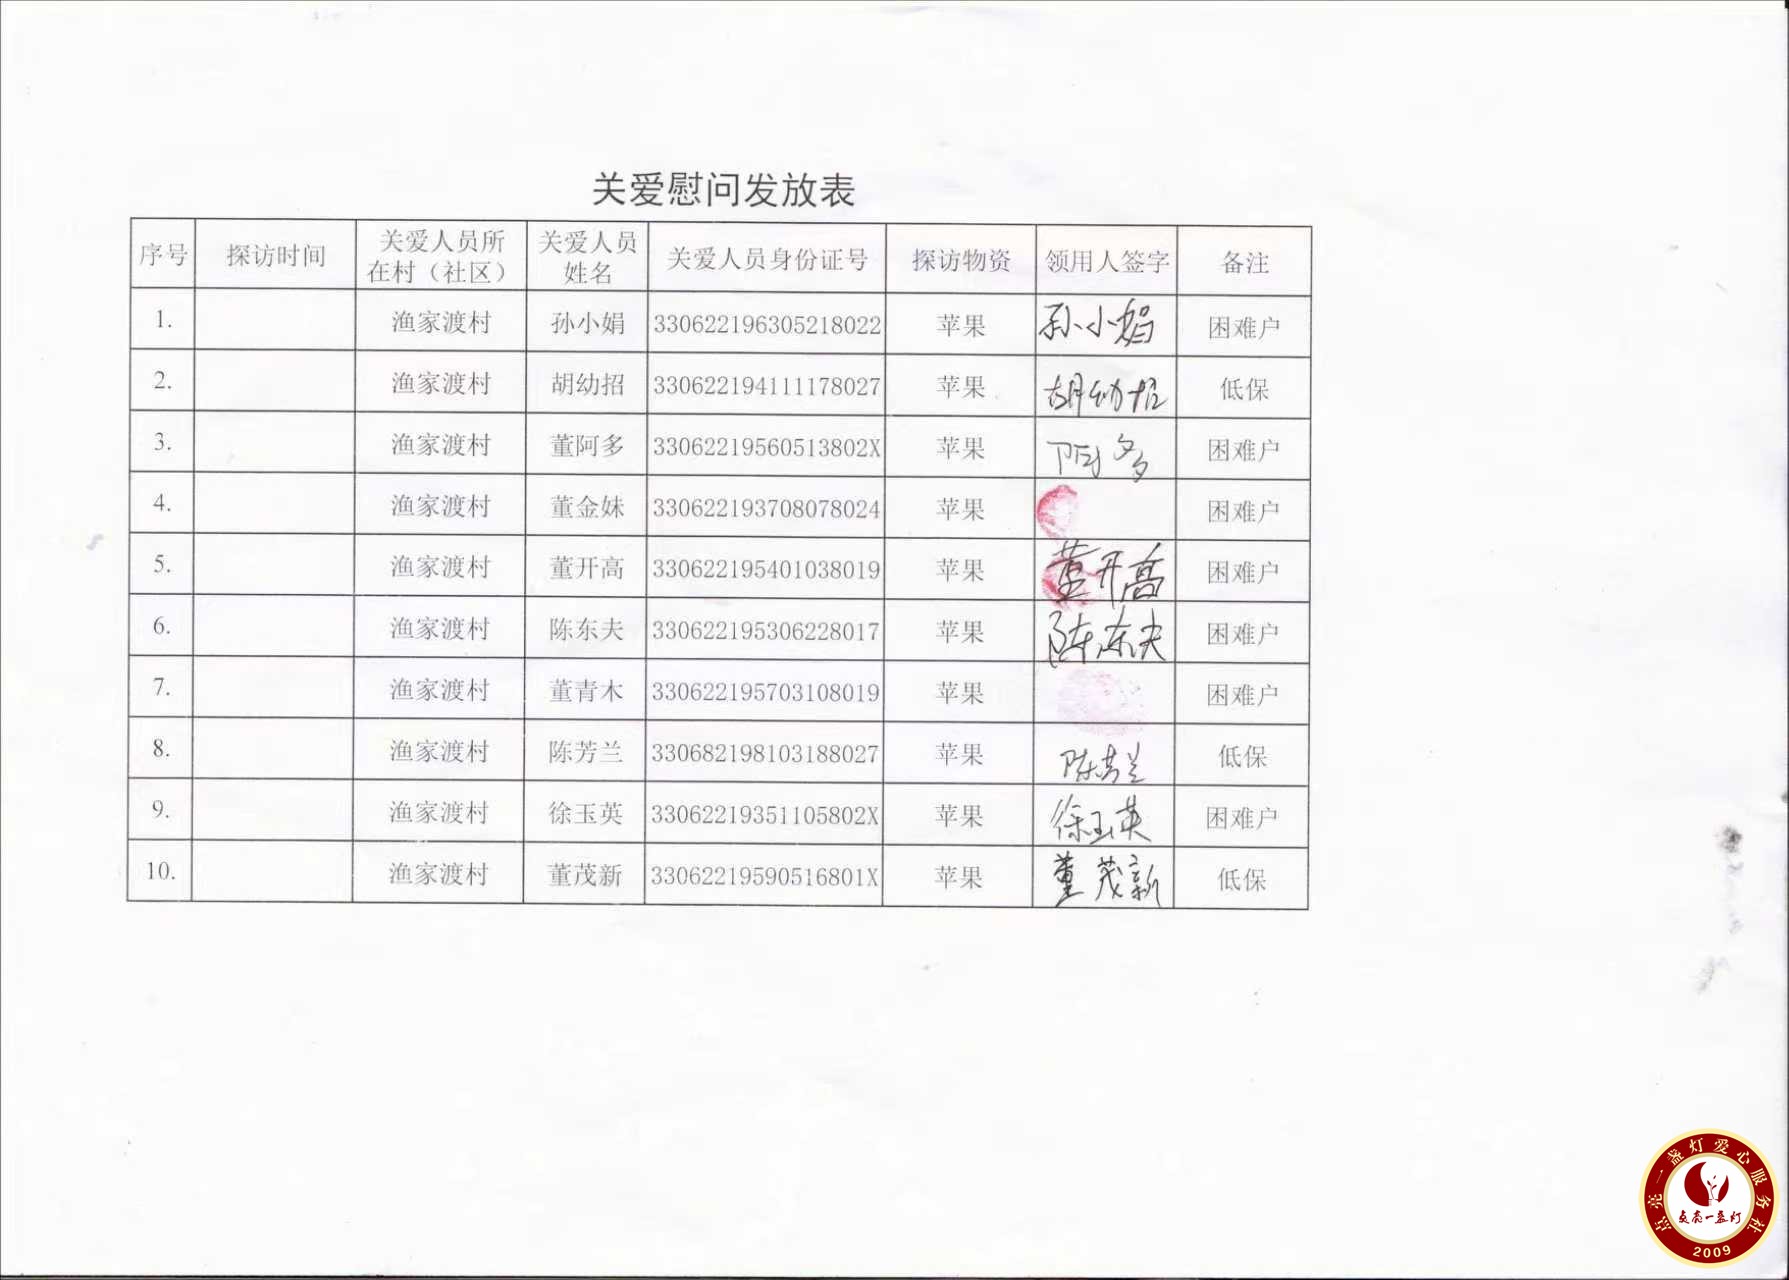 关爱慰问发放表
序号 探访时间 关爱人员所在村（社区） 关爱人员姓名 关爱人员身份证号 探访物资 领用人签字 备注
1. 渔家渡村 孙小娟 330622196305218022 苹果 孙小娟 困难户
2. 渔家渡村 胡幼招 330622194111178027 苹果 胡幼招 低保
3. 渔家渡村 董阿多 33062219560513802X 苹果 阿多 困难户
4. 渔家渡村 董金妹 330622193708078024 苹果 困难户
5. 渔家渡村 董开高 330622195401038019 苹果 董开高 困难户
6. 渔家渡村 陈东夫 330622195306228017 苹果 陈东夫 困难户
7. 渔家渡村 董青木 330622195703108019 苹果 困难户
8. 渔家渡村 陈芳兰 330682198103188027 苹果 陈芳兰 低保
9. 渔家渡村 徐玉英 33062219351105802X 苹果 徐玉英 困难户
10. 渔家渡村 董茂新 33062219590516801X 苹果 董茂新 低保
点亮一盏灯爱心服务社
点亮一盏灯
2009